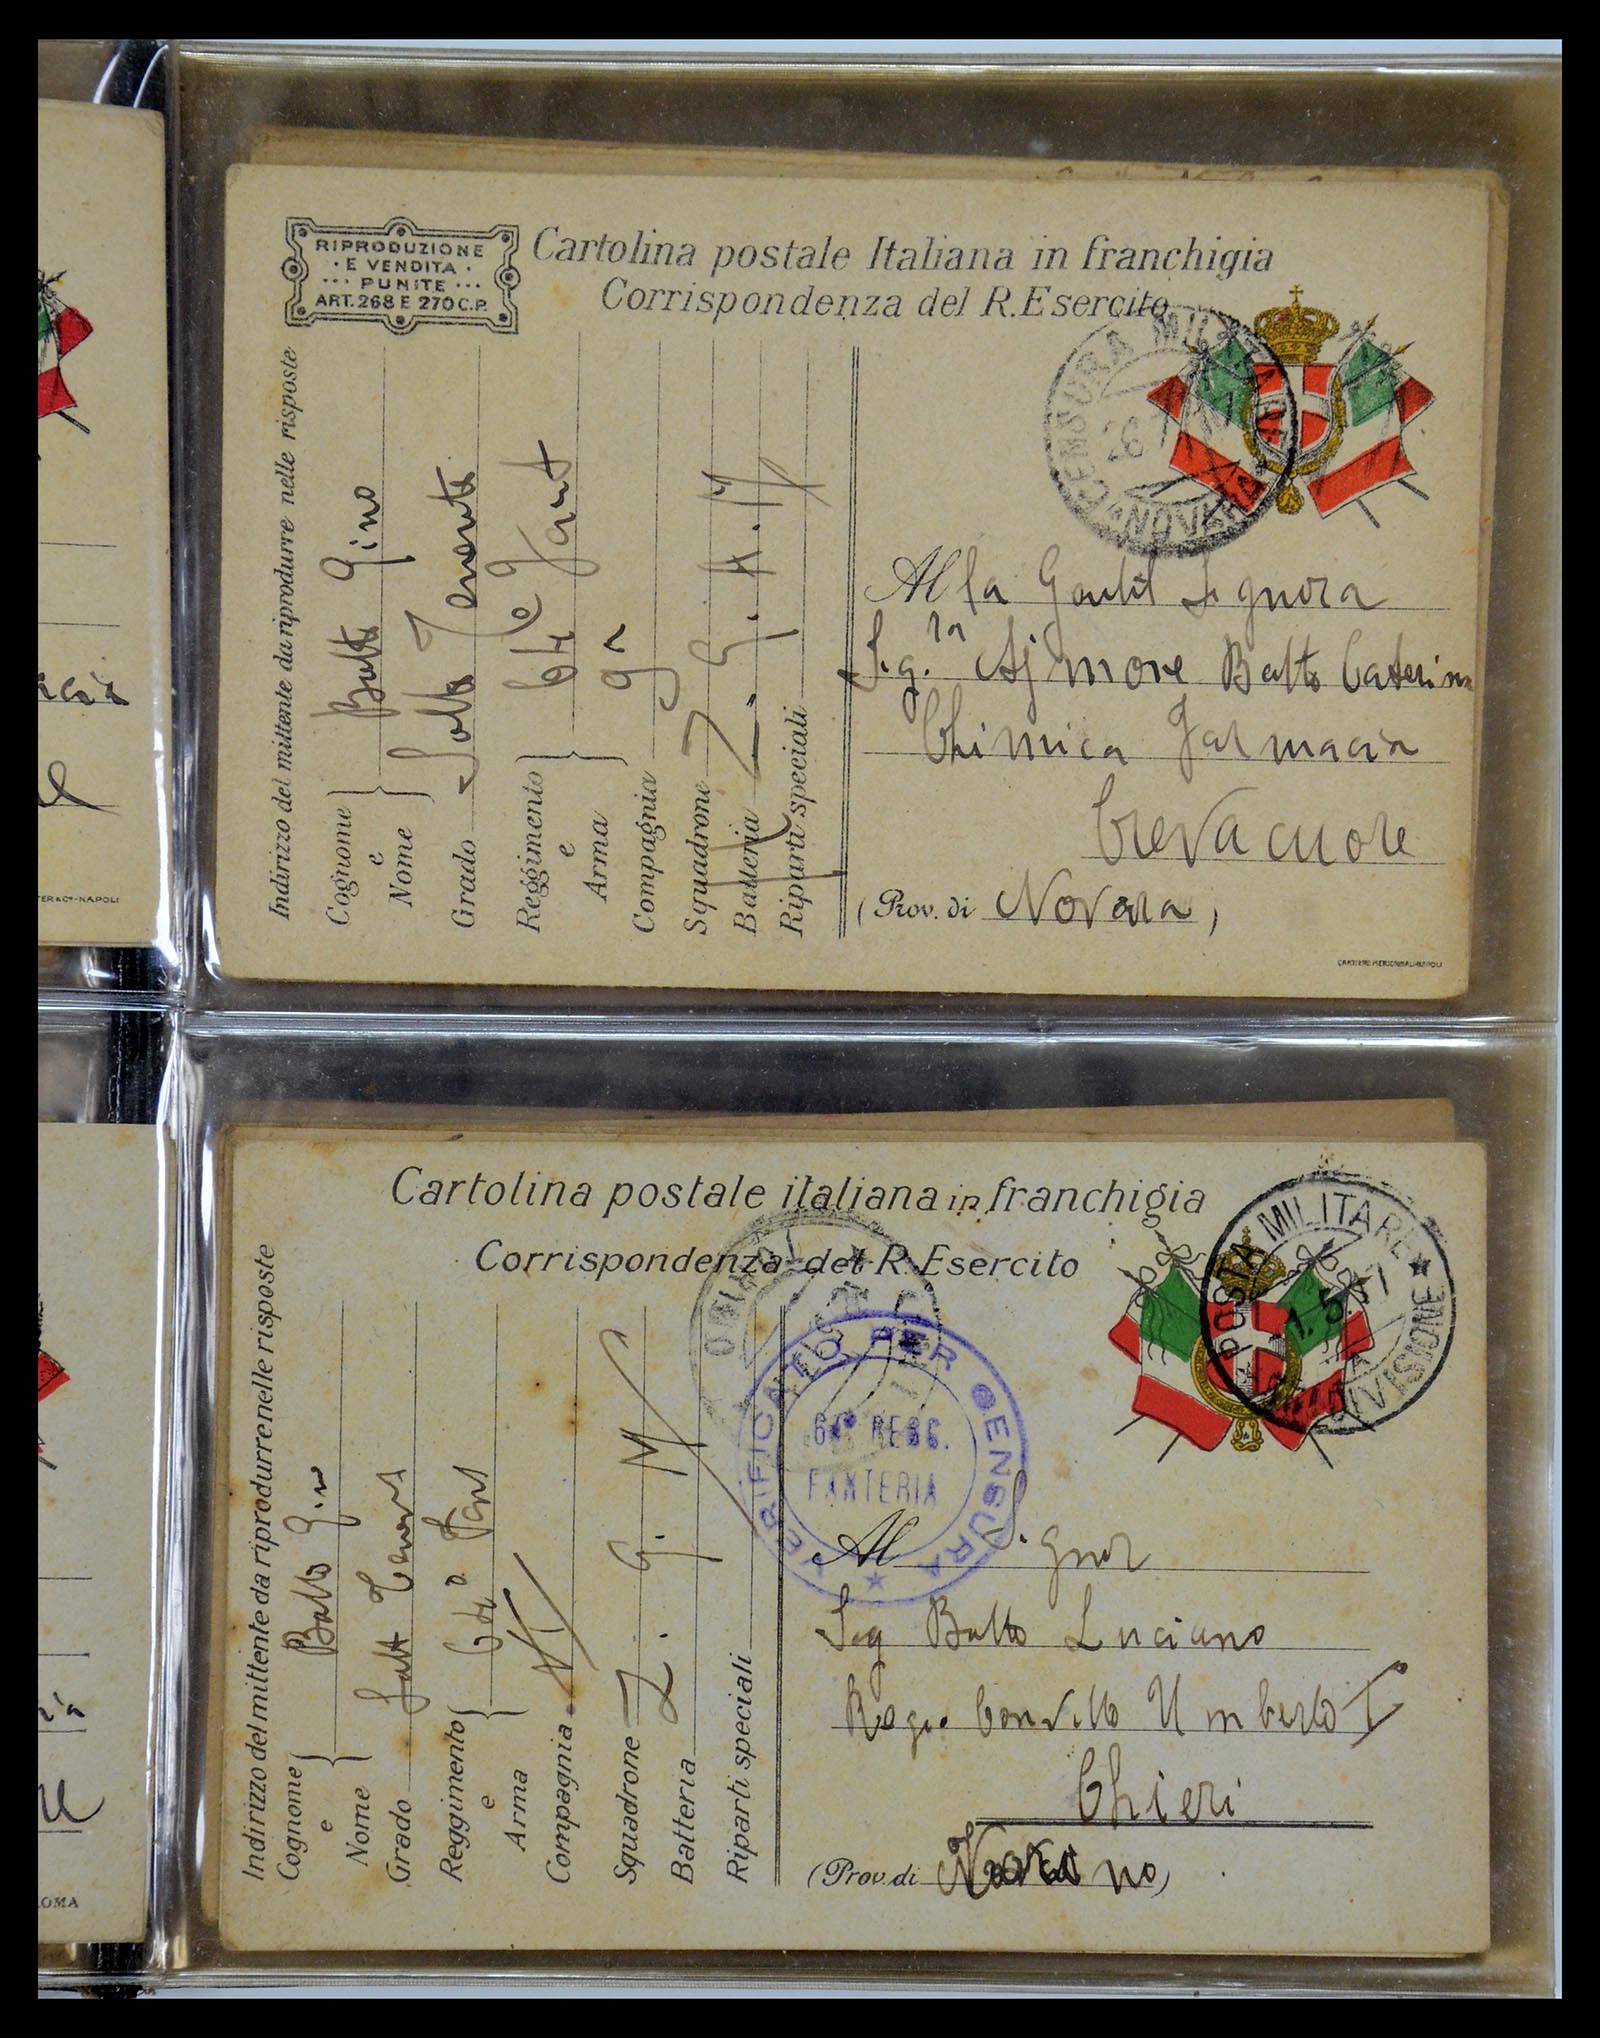 RIPRODUZIONE
· E VENDITA ·
··· PUNITE ···
ART. 268 E 270 C.P.
Cartolina postale Italiana in franchigia
Corrispondenza del R. Esercito
CENSURA MILITARE
Indirizzo del mittente da riprodurre nelle risposte
Cognome e Nome Botto Gino
Grado Sotto Tenente
Reggimento e Arma 64º Fant
Compagnia 9ª
Squadrone
Batteria Z. G.
Riparti speciali
Alla Gentil Signora
Sig.ra Ajmone Botto Caterina
Chimica Farmacia
Crevacuore
(Prov. di Novara)
CARTIERE MERIDIONALI-NAPOLI
Cartolina postale italiana in franchigia
Corrispondenza del R. Esercito
POSTA MILITARE
DIVISIONE
VERIFICATO PER CENSURA
64º REGG.
FANTERIA
Indirizzo del mittente da riprodurre nelle risposte
Cognome e Nome Botto Gino
Grado Sott Tenent
Reggimento e Arma 64º Fant
Compagnia
Squadrone Z. G.
Batteria
Riparti speciali
Al Signor
Sig Botto Luciano
Regio Convitto Umberto I
Chieri
(Prov. di
NAPOLI
ROMA